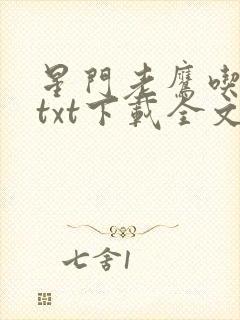 星門老鷹喫
txt下載全文
七舍1